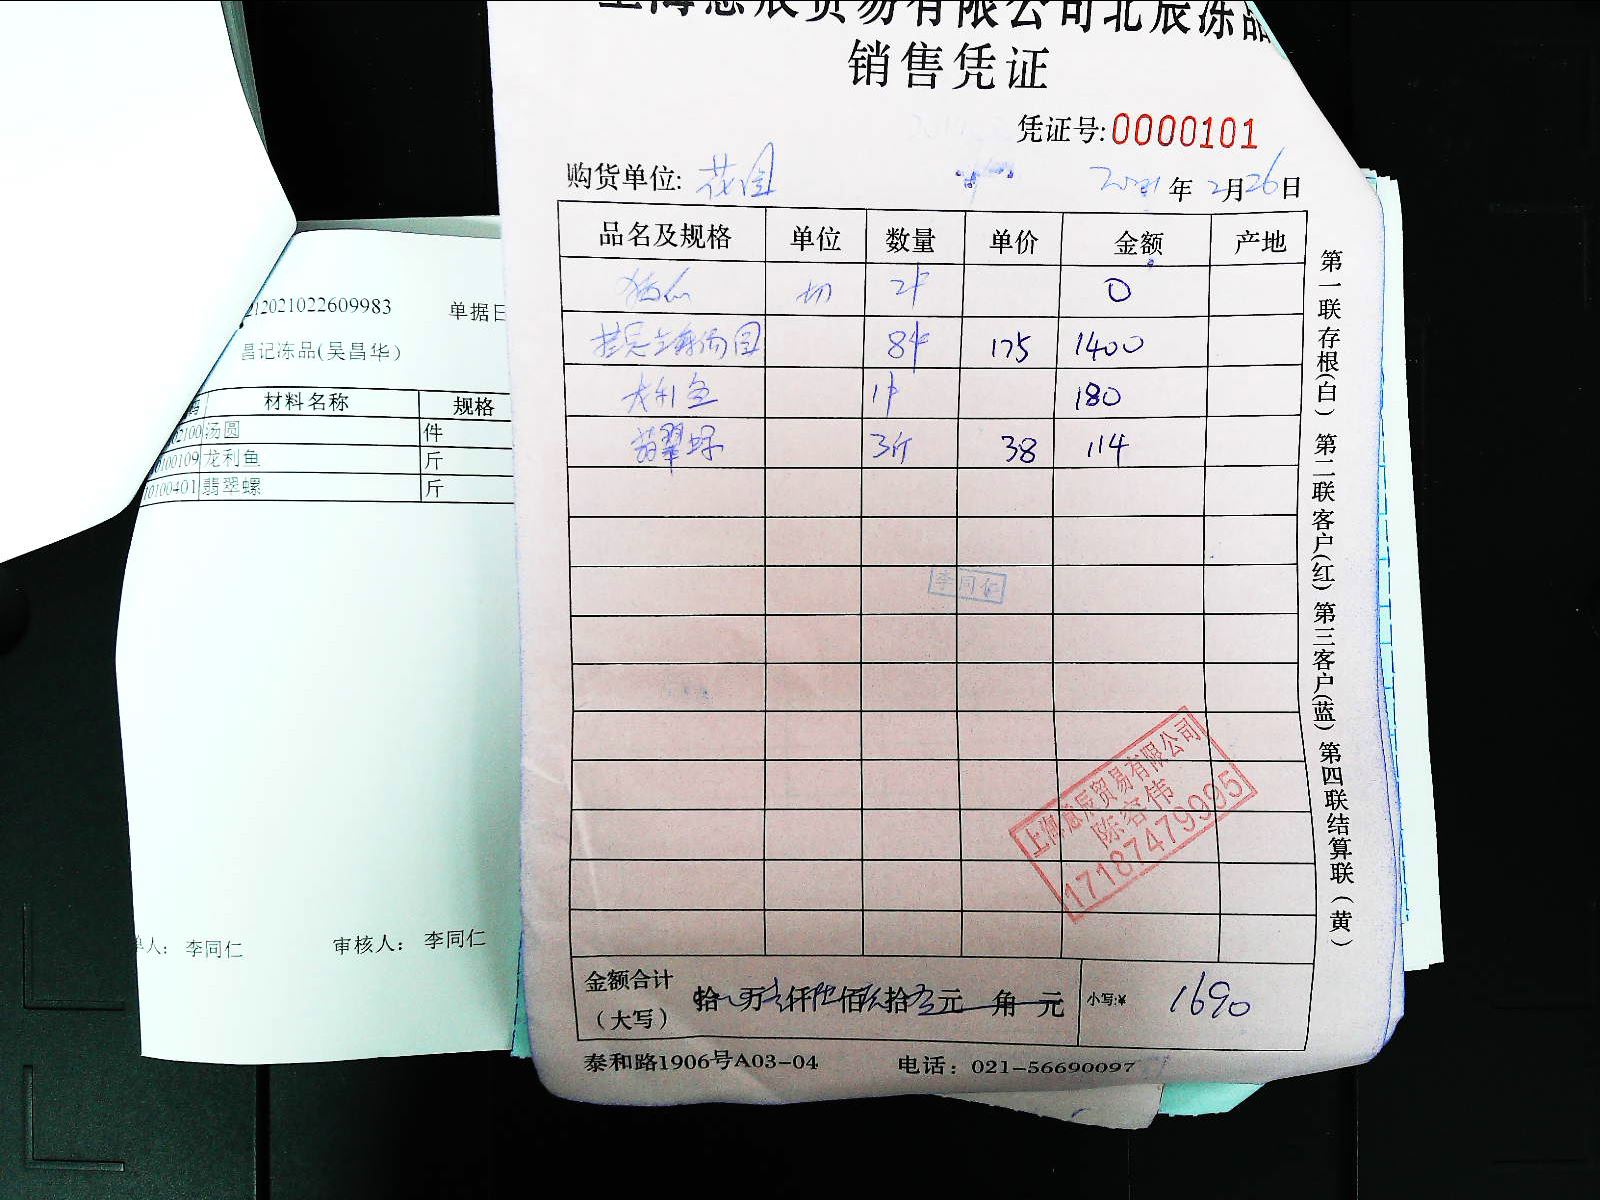 有限公司北辰冻品
销售凭证
凭证号:0000101
购货单位: 花园
2021年2月26日
品名及规格 单位 数量 单价 金额 产地
2件 0
8件 175 1400
龙利鱼 1件 180
翡翠螺 3斤 38 114
李同仁
上海 辰贸易有限公司
陈容伟
17187479995
金额合计
(大写)
拾 万 仟 佰 拾 元 角 元
小写:¥ 1690
泰和路1906号A03-04 电话: 021-56690097
第一联存根(白) 第二联客户(红) 第三客户(蓝) 第四联结算联(黄)
2021022609983 单据日
昌记冻品(吴昌华)
材料名称 规格
汤圆 件
0100109 龙利鱼 斤
10100401 翡翠螺 斤
单人: 李同仁 审核人: 李同仁